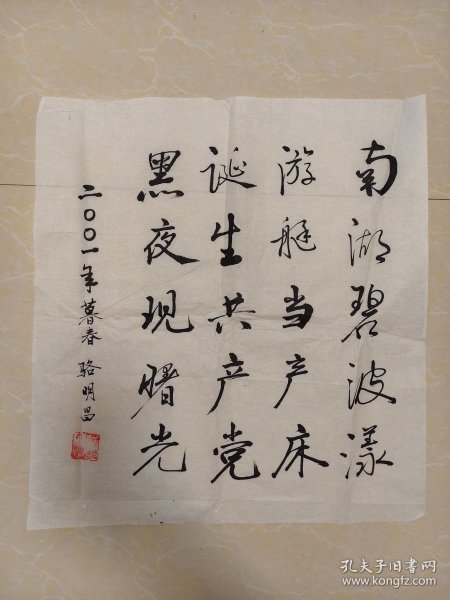 南湖碧波漾
游艇当产床
诞生共产党
黑夜现曙光
二〇〇一年暮春 骆明昌
孔夫子旧书网
www.kongfz.com